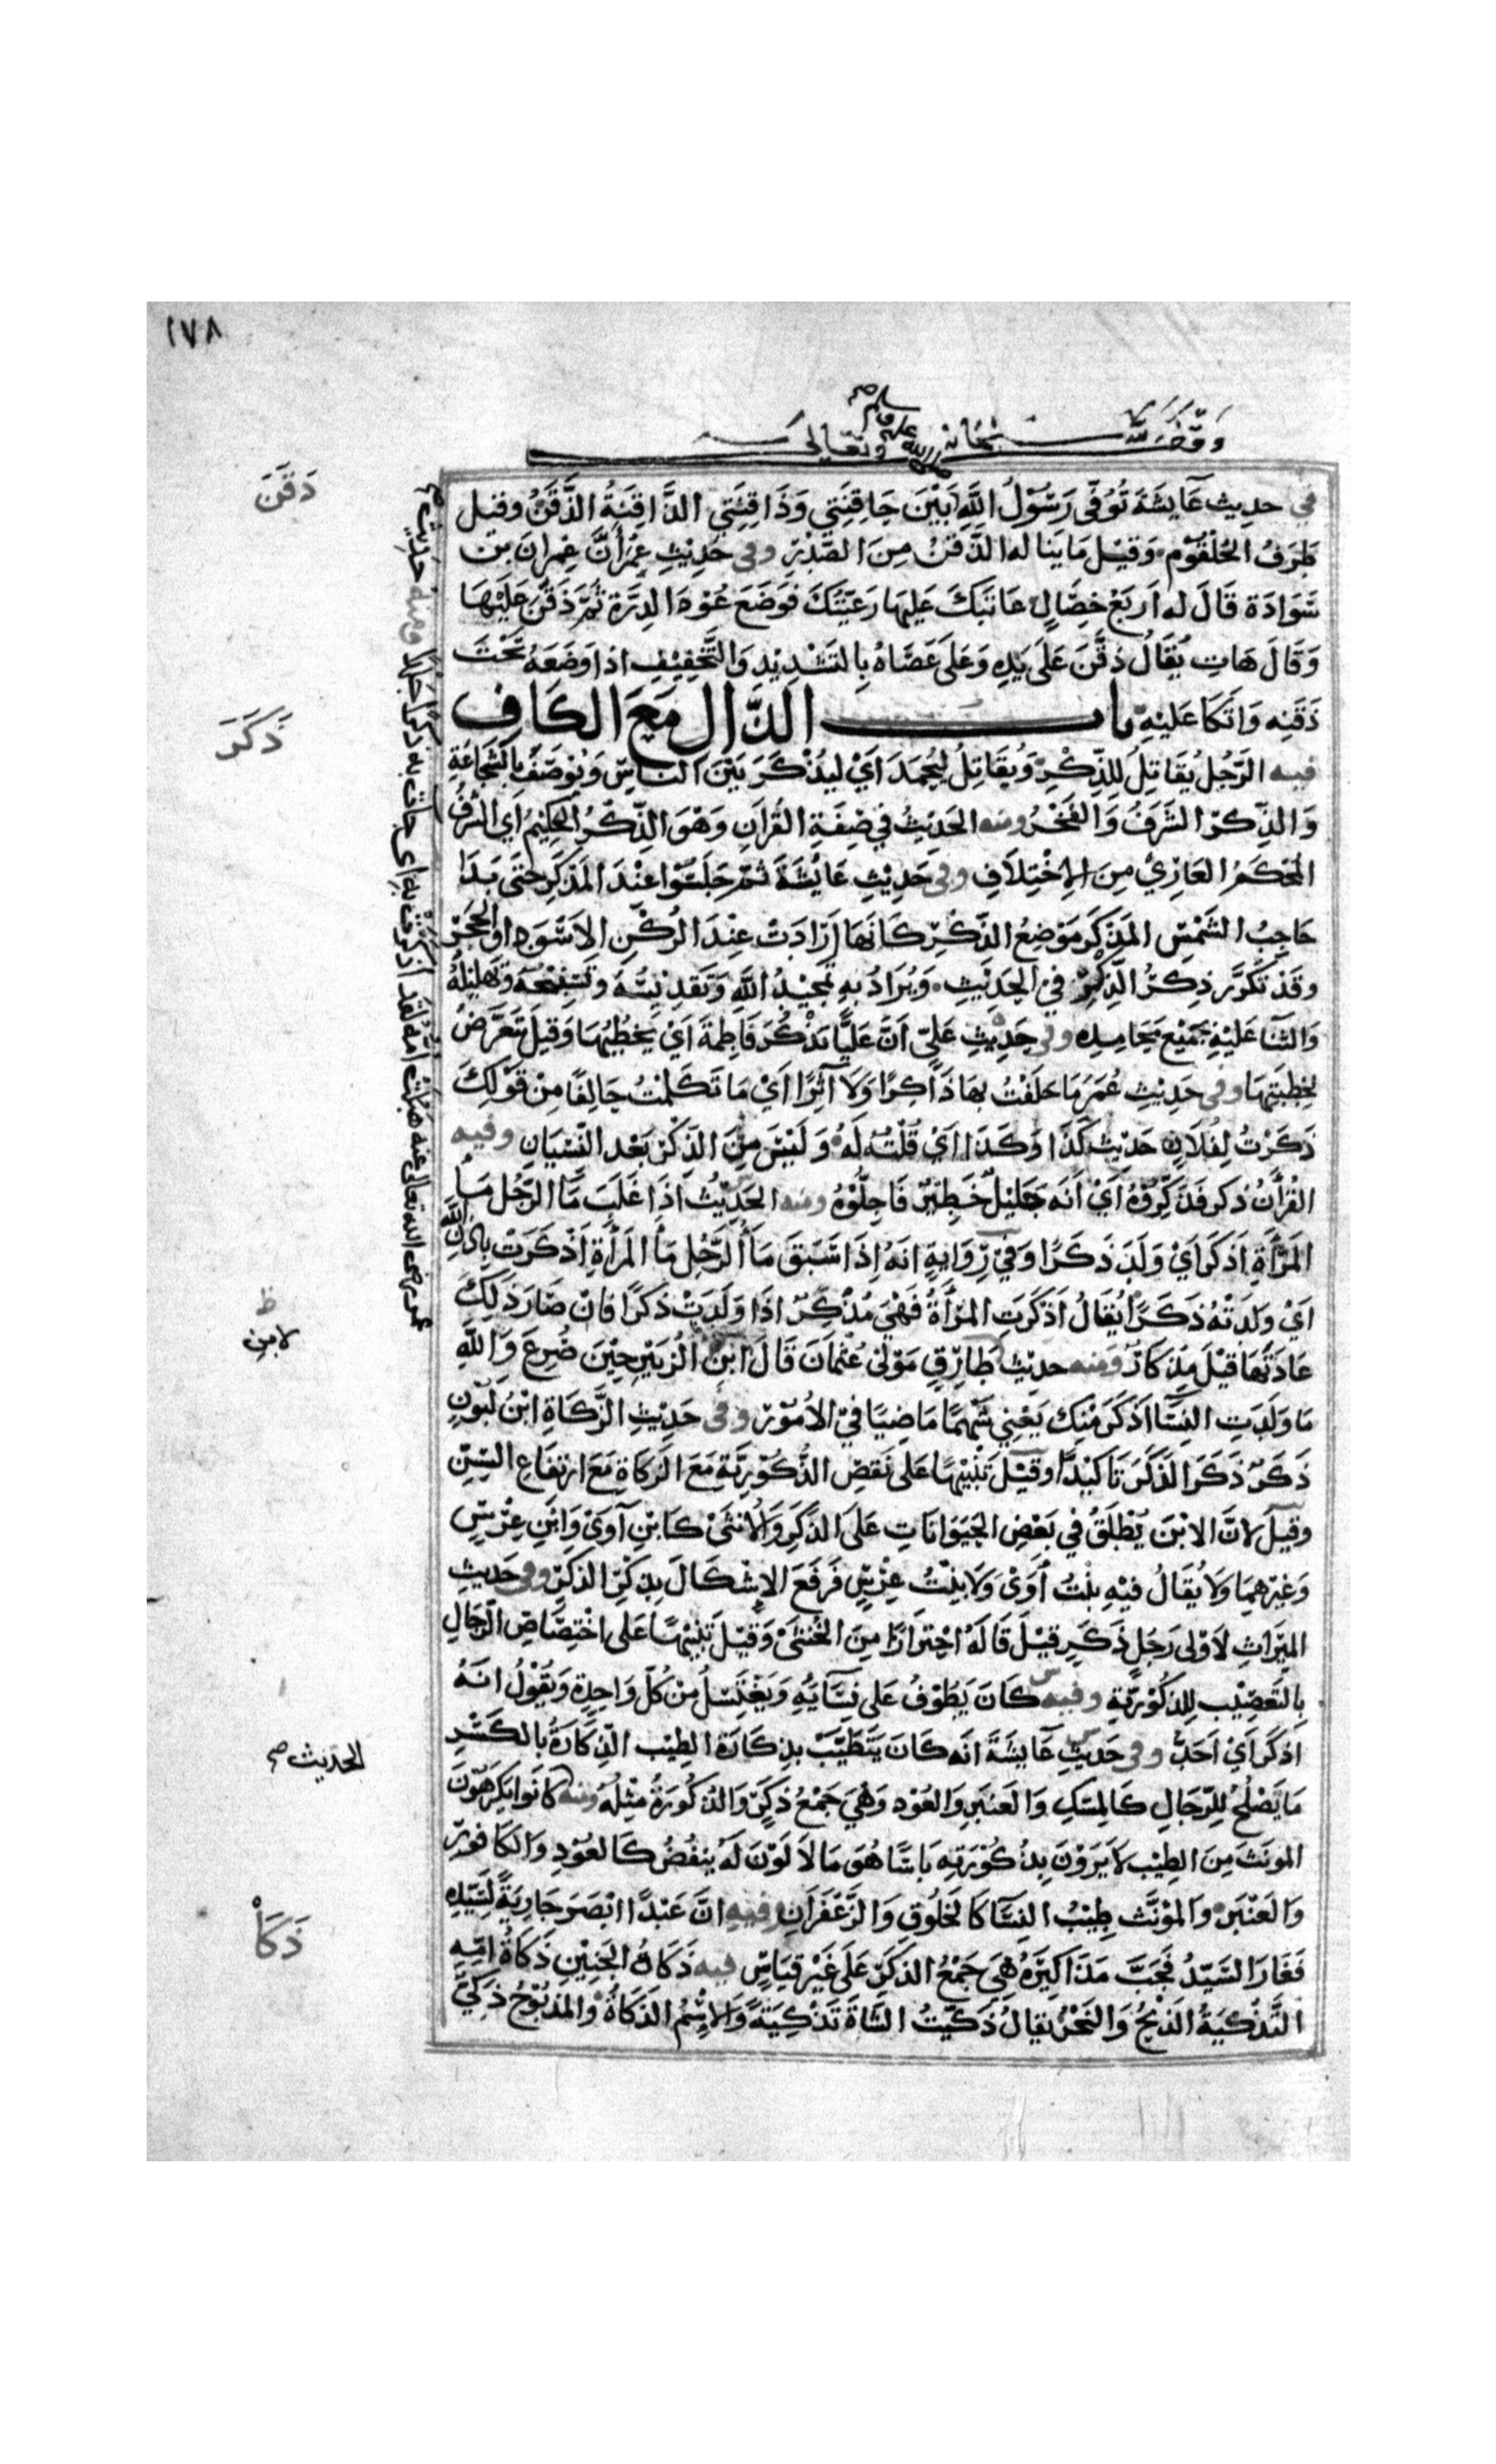 ١٧٨
وقف لله سبحانه وتعالى
صلى الله عليه وسلم
في حديث عَايشَةَ تُوُفّى رَسُوْلُ اللَّهِ بَيْنَ حَاقِنَتِي وَذَاقِنَتِي الذَّاقِنَةُ الذَّقَنُ وقيل
طَرَفُ الحُلْقُوْم وَقيْل مَا يَنَاله الذَّقَنُ مِنَ الصَّدْرِ وفى حَدِيْثِ عُمَرَ أَنَّ عِمرَانَ بن
سَوَادَة قَالَ له اَربَعُ خِصَالٍ عَاتَبَتكَ عَليهَا رَعيَّتُكَ فَوَضَعَ عُوْدَ الدِرَّةِ ثُمَّ ذَقَّنَ عَلَيْهَا
وَقَالَ هَاتِ يُقَالُ ذقَّنَ عَلَى يَدِهِ وَعَلَى عَصَاهُ بِالتَشْدِيْدِ وَالتَّخْفِيْفِ اذا وَضَعَهُ تَحْتَ
ذَقَنِه وَاتَّكَا عَليْهِ باب الذَّالِ مَعَ الكَافِ
فيه الرَّجُل يُقَاتِلُ للذِّكْرِ وَيُقَاتِلُ لِيُحْمَدَ اَيْ ليُذْكَرَ بَيْنَ النَاسِ وَيُوْصَفَ بالشَجَاعَةِ
وَالذّكرُ الشَرَفُ وَالفَخْرُ ومنه الحَدِيْثُ في صِفَةِ القُرْآنِ وَهُوَ الذّكْرُ الحَكِيْمُ اي الشَرَفُ
المُحْكَمُ العَارِيْ مِنَ الاخْتِلَافِ وفى حَدِيْثِ عَايْشَةَ ثمَّ جَلَسُوْا عِنْدَ المَذْكَرِ حَتَى بَدَا
حَاجِبُ الشَمْسِ المَذْكَرُ مَوْضِعُ الذّكْرِ كَأنّهَا اَرَادَتْ عِنْدَ الرُكْنِ الاَسْوَدِ او الحِجْر
وقَدْ تَكَرَّر ذِكرُ الذِكْرِ في الحَدِيْثِ وَيُرَادُ بِهِ تَمْجِيْدُ اللهِ وَتَقدِيْسُهُ وَتَسْبِيْحُهُ وَتَهلِيْلُهُ
وَالثَنَا عَلَيْهِ بجَمِيْع مَحَامِدِه وفى حَدِيْثِ عَليٍّ اَنَّ عَليًّا يَذْكُرُ فَاطِمَةَ اَيْ يَخطُبُهَا وَقيلَ يَتَعَرَّضُ
لِخِطْبَتِهَا وفى حَدِيْثِ عُمَرَ مَا حَلَفْتُ بهَا ذَاكِرًا وَلَا آثِرًا اَيْ مَا تَكَلمْتُ حَالِفًا مِنْ قَوْلِكَ
ذَكَرْتُ لِفُلَانٍ حَدِيْثَ كَذَا وَكَذَا اَيْ قُلْتُهُ لَهُ وَلَيْسَ مِنَ الذِّكْرِ بَعْد النّسْيَانِ وفيه
القُرْآنُ ذَكر فَذَكّرُوْهُ اَيْ اَنَهَ جَلِيْلٌ خَطِيْرٌ فَاجِلُّوْهُ ومنه الحَدِيْثُ اذَا غَلَبَ مَا الرَّجُل مَا
المَرْاَةِ اَذكَرَا اَيْ وَلَدَ ذَكَرًا وَفيْ رِوَايةٍ انَهُ اِذَا سَبَقَ مَا الرَّجُلِ مَا المَرْاَةِ اَذْكَرَتْ بِاذنِ اللَّهِ
اَيْ وَلَدَتْهُ ذَكَرًا يُقَالُ اَذْكَرَتِ المَرْاَةُ فَهْيَ مُذْكِرٌ اذَا وَلَدَتْ ذَكَرًا فَانْ صَارَ ذَلِكَ
عَادَتَهَا قيْلَ مِذْكَارٌ ومنه حديث طَارِقٍ مَوْلى عُثْمَانَ قَالَ لابْنِ الزُبَيْرِ حِيْنَ صُرِعَ وَاللّهِ
مَا وَلَدَتِ النِسَا اَذْكَرَ مِنْكَ يَعْنِي شَهْمًا مَاضِيًا فيْ الاُمُوْر وفى حَدِيْثِ الزَّكَاةِ ابْنُ لَبُوْنٍ
ذَكَرٌ ذَكَرَ الذَكَرَ تَاكيْدًا وقيْلَ تَنْبِيْهًا عَلَى نَقصِ الذُّكُوْرِيَّةِ مَعَ الزَكَاةِ مَعَ ارتفَاعِ السِنِّ
وقيلَ لانَّ الابْنَ يُطْلَقُ في بَعْضِ الحَيَوَانَاتِ عَلَى الذَكَرِ وَالاُنثَىْ كَابْنِ آوَىْ وَابْنِ عِرْسٍ
وَغَيْرِهمَا وَلَا يُقَالُ فيْهِ بِنْتُ آوَىْ وَلَا بِنْتُ عِرْسٍ فَرَفَعَ الاِشْكَالَ بِذِكْرِ الذَكَرِ وفى حَدِيثِ
الميْرَاثِ لاَوْلى رَجُلٍ ذَكَرٍ قيْلَ قَالَهُ احْتِرَازًا مِنَ الخُنثَىْ وَقيْلَ تَنْبِيْهًا عَلَى اخْتِصَاصِ الرّجَالِ
بِالتَّعصِيْب لِلذكُوْرِيَّةِ وفيه كَانَ يَطُوْفُ عَلى نِسَائِهِ وَيَغْتَسِلُ مِنْ كُلّ وَاحِدَةٍ وَيَقُوْلُ انَهُ
اَذْكَرُ اَيْ اَحَدُّ وفى حَديْثِ عَايشَةَ انَه كَانَ يَتَطَيَّبُ بذِكَارَةِ الطِيْب الذّكَارَةُ بالكَسْرِ
مَا يَصْلُحُ للرّجَالِ كَالمِسْكِ وَالعَنبَرِ وَالعُوْدِ وَهْيَ جَمْعُ ذَكَرٍ وَالذُكُوْرَةُ مِثْلُهُ ومنه كَانُوا يَكرَهُوْنَ
المؤنثَ مِنَ الطِيْب لاَ يَرَوْنَ بِذُكُوْرَتِهِ بَاسًا هُوَ مَا لَا لَوْنَ لَهُ يَنفُضُ كَالعُوْدِ وَالكَافوْرِ
وَالعَنْبَرِ وَالمُؤنَّث طِيْبُ النِسَا كَالخَلُوقِ وَالزَّعْفَرَانِ وفيه اَنَّ عَبْدًا ابْصَرَ جَارِيَةً لسَيّدِهِ
فَغَارَ السَيّدُ فَجَبَّ مَذَاكِيْرَهُ هِيَ جَمْعُ الذكَرِ عَلَى غَيْرِ قيَاسٍ فيه ذَكَاةُ الجَنِيْنِ ذَكَاةُ اُمِّهِ
التَّذْكِيَةُ الذَبْحُ وَالنَحْرُ يُقَالُ ذَكَيْتُ الشَاةَ تَذْكِيَةً وَالاِسْمُ الذَكَاةُ وَالمَذْبُوْحُ ذَكِيٌّ
ذَقَنَ
ذَكَرَ
ظ
لابن
الحديث صح
ذَكَا